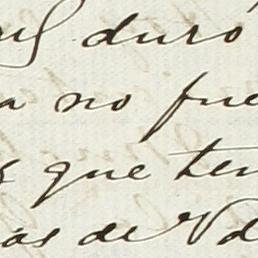 duró
no fue
que ten
as de V d